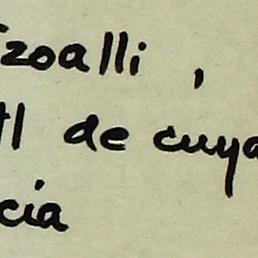 zoalli,
tl de cuya
cia